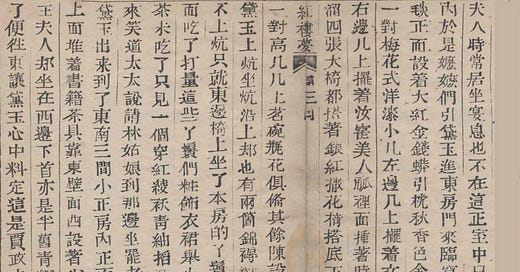 夫人時常居坐宴息也不在這正室中
內於是嬤嬤們引黛玉進東房門來臨
毯正面設着大紅金錢蟒引枕秋香色金
一對梅花式洋漆小几左邊几上擺着
右邊几上擺着汝窰美人觚裡面插著
溜四張大椅都搭著銀紅撒花椅搭底
紅樓夢 第三回
一對高几几上茗碗瓶花俱備其餘陳
黛玉上炕坐炕沿上却也有兩箇錦褥
不上炕只就東邊椅上坐了本房的丫
面吃了打量這些丫鬟們粧飾衣裙舉
茶未吃了只見一個穿紅綾袄青紬掐
來笑道太太說請林姑娘到那邊坐罷
黛玉出來到了東南三間小正房內正
上面堆着書籍茶具靠東壁面西設着
王夫人却坐在西邊下首亦是半舊青
了便往東讓黛玉心中料定這是賈政